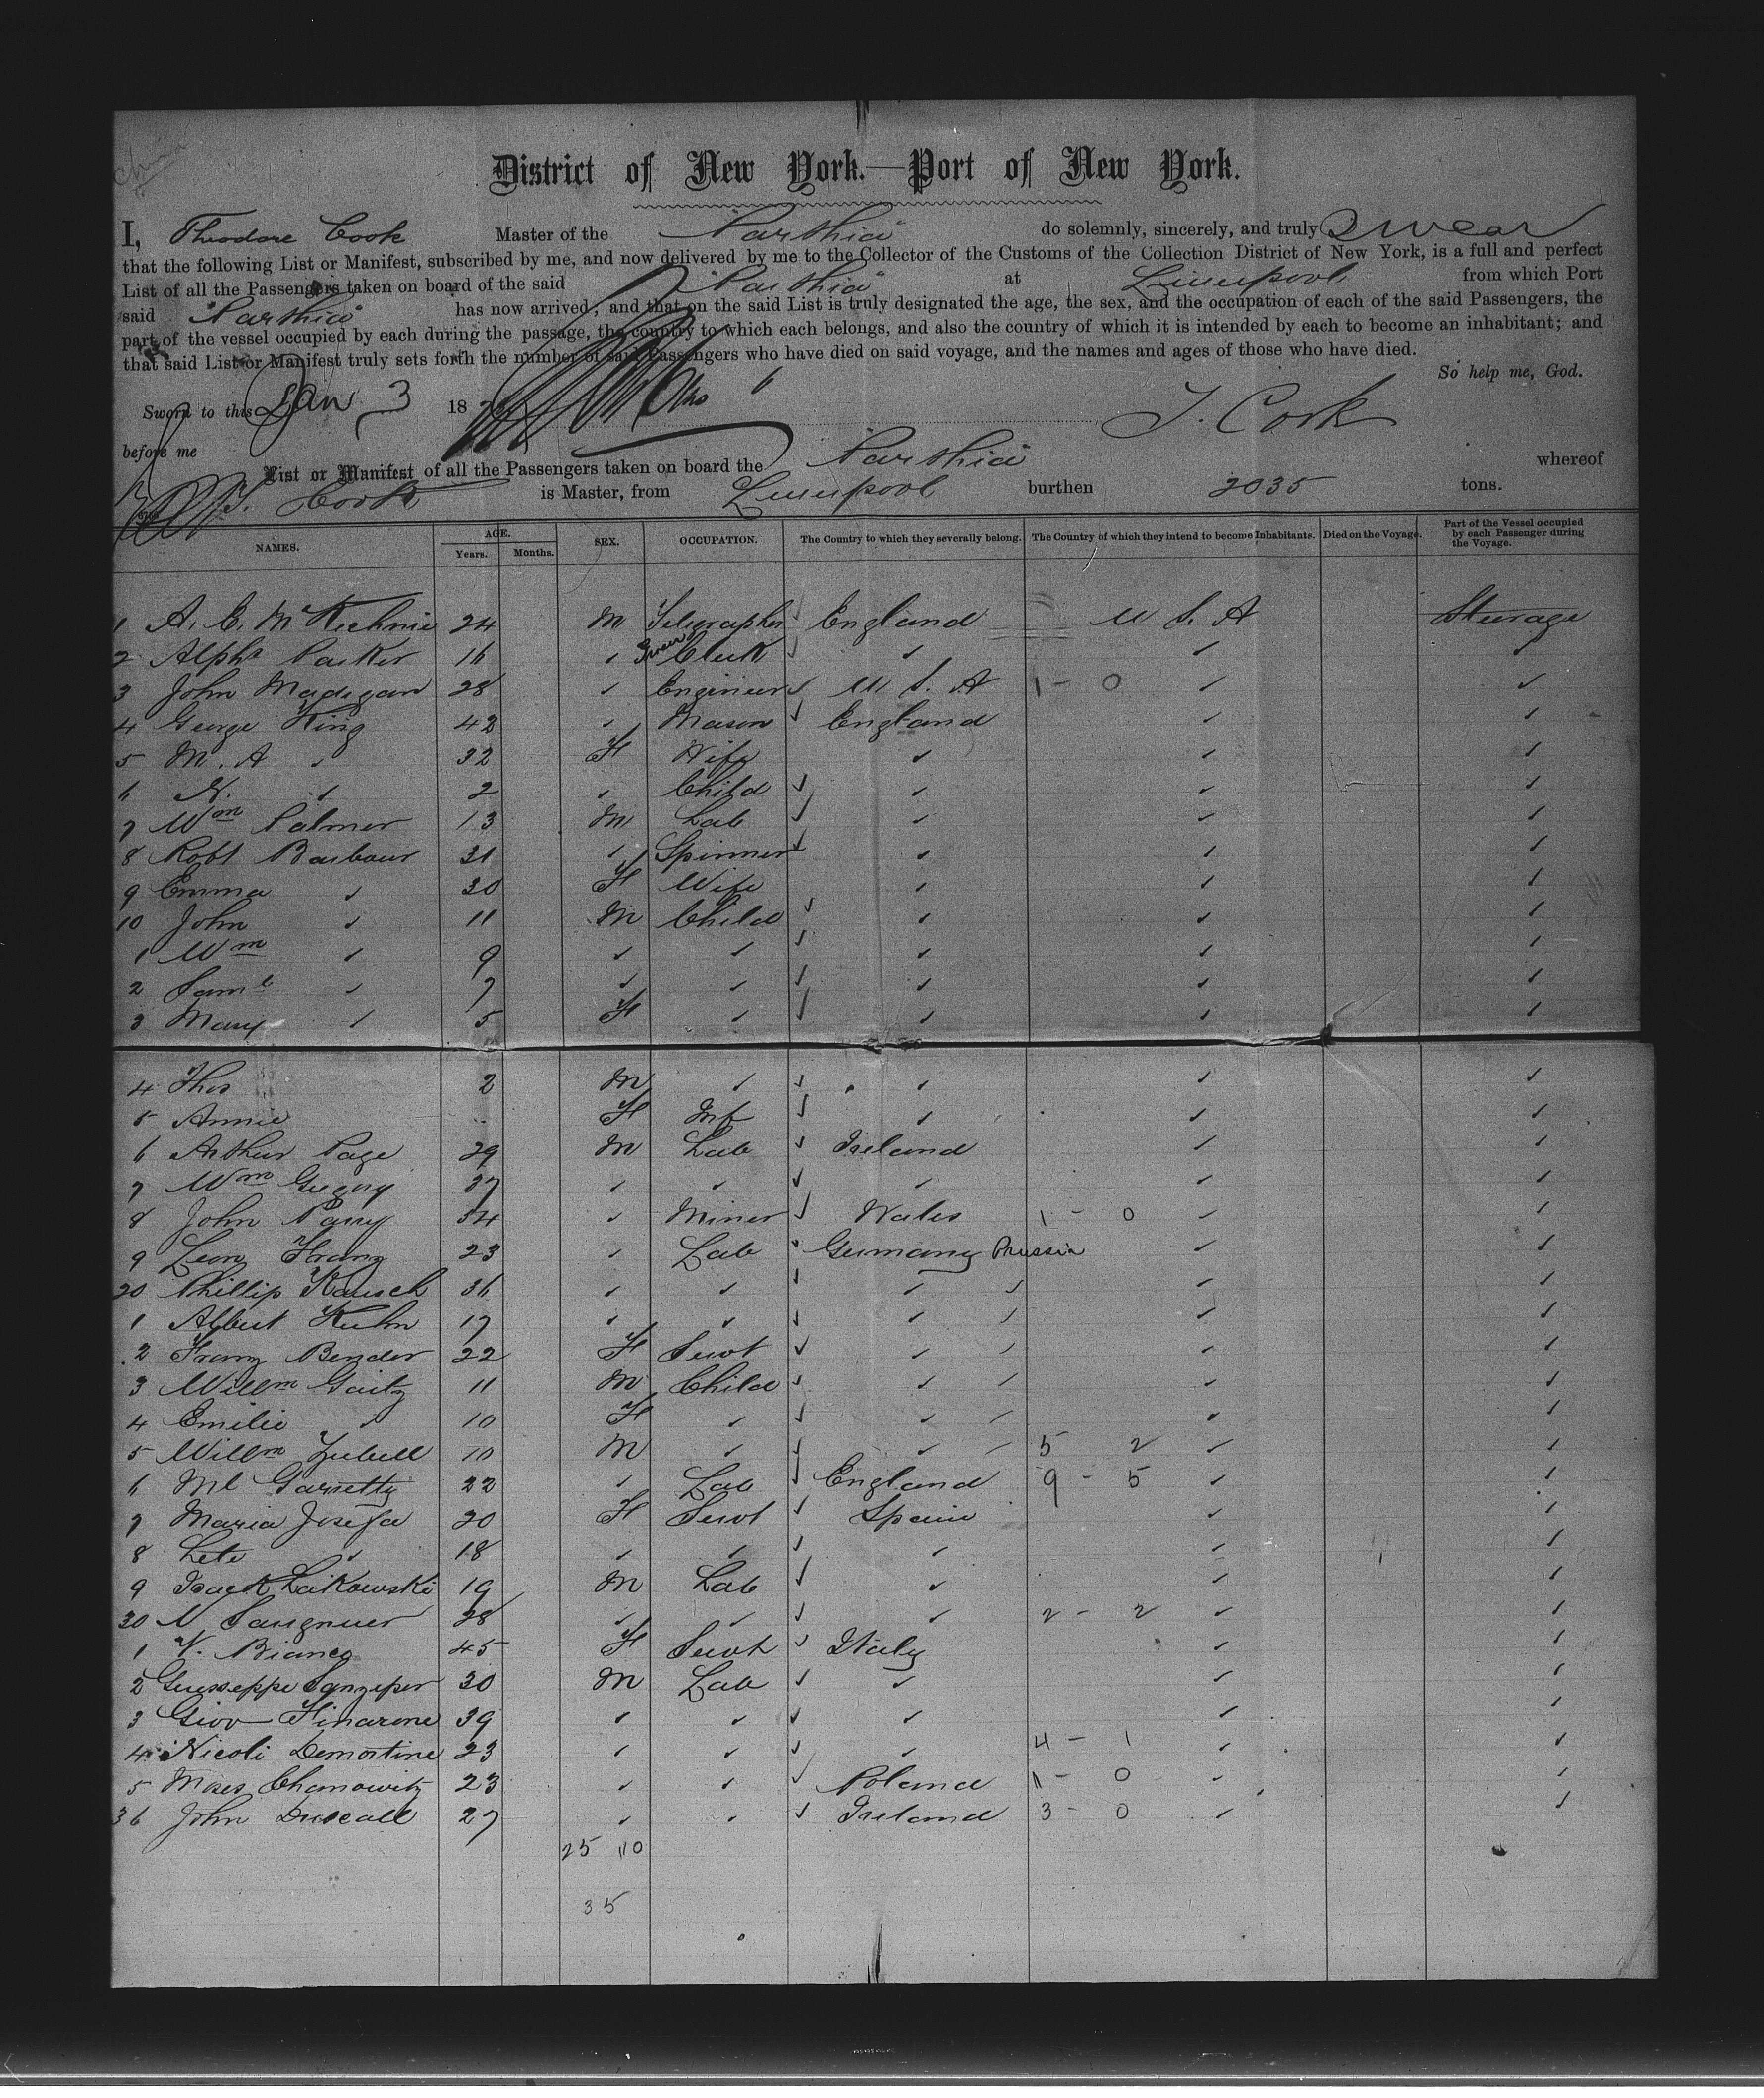 District of New York.—Port of New York.
I, Theodore Cook Master of the "Parthia" do solemnly, sincerely, and truly swear
that the following List or Manifest, subscribed by me, and now delivered by me to the Collector of the Customs of the Collection District of New York, is a full and perfect
List of all the Passengers taken on board of the said "Parthia" at Liverpool from which Port
said "Parthia" has now arrived; and that on the said List is truly designated the age, the sex, and the occupation of each of the said Passengers, the
part of the vessel occupied by each during the passage, the country to which each belongs, and also the country of which it is intended by each to become an inhabitant; and
that said List or Manifest truly sets forth the number of said Passengers who have died on said voyage, and the names and ages of those who have died.
So help me, God.
Sworn to this Jan 3 18 T. Cook
before me
List or Manifest of all the Passengers taken on board the Parthia whereof
T. Cook is Master, from Liverpool burthen 2035 tons.
NAMES. AGE. Years. Months. SEX. OCCUPATION. The Country to which they severally belong. The Country of which they intend to become Inhabitants. Died on the Voyage. Part of the Vessel occupied by each Passenger during the Voyage.
1 A. C. McKechnie 24 M Telegrapher ✓ England U S. A Steerage
2 Alph Parker 16 ✓ Clerk ✓ ✓ ✓ ✓
3 John Madigan 28 ✓ Engineer ✓ U S. A 1 - 0 ✓ ✓
4 George King 42 ✓ Mason ✓ England ✓ ✓
5 M. A ✓ 32 F Wife ✓ ✓ ✓
6 N. ✓ 2 ✓ Child ✓ ✓ ✓ ✓
7 Wm Palmer 13 M Lab ✓ ✓ ✓ ✓
8 Robt Barbour 31 ✓ Spinner ✓ ✓ ✓ ✓
9 Emma ✓ 30 F Wife ✓ ✓ ✓
10 John ✓ 11 M Child ✓ ✓ ✓ ✓
1 Wm ✓ 9 ✓ ✓ ✓ ✓ ✓ ✓
2 Saml ✓ 7 ✓ ✓ ✓ ✓ ✓ ✓
3 Mary ✓ 5 F ✓ ✓ ✓ ✓ ✓
4 Thos 2 M ✓ ✓ ✓ ✓ ✓
5 Annie F Inf ✓ ✓ ✓ ✓
6 Arthur Page 29 M Lab ✓ Ireland ✓ ✓
7 Wm Gregory 37 ✓ ✓ ✓ ✓ ✓ ✓
8 John Parry 34 ✓ Miner ✓ Wales 1 - 0 ✓ ✓
9 Leon Franz 23 ✓ Lab ✓ Germany Prussia ✓ ✓
20 Phillip Kausch 36 ✓ ✓ ✓ ✓ ✓ ✓ ✓
1 Albert Kuhn 17 ✓ ✓ ✓ ✓ ✓ ✓ ✓
2 Franz Bender 22 F Servt ✓ ✓ ✓ ✓ ✓
3 Willm Gaitz 11 M Child ✓ ✓ ✓ ✓ ✓
4 Emilie ✓ 10 F ✓ ✓ ✓ ✓ ✓ ✓
5 Willm 10 M ✓ ✓ ✓ ✓ 5 2 ✓ ✓
6 Ml Garretty 22 ✓ Lab ✓ England 9 - 5 ✓ ✓
7 Maria Josefa 20 F Servt ✓ Spain ✓ ✓
8 Lete ✓ 18 ✓ ✓ ✓ ✓ ✓ ✓
9 Isack Laikowski 19 M Lab ✓ ✓ ✓ ✓
30 N 28 ✓ ✓ ✓ ✓ 2 - 2 ✓ ✓
1 V. Bianco 45 F Servt ✓ Italy ✓ ✓
2 Guiseppe 30 M Lab ✓ ✓ ✓ ✓
3 Giov Finarone 39 ✓ ✓ ✓ ✓ ✓ ✓
4 Nicoli Demortine 23 ✓ ✓ ✓ ✓ 4 - 1 ✓ ✓
5 Moses Chanowitz 23 ✓ ✓ ✓ Poland 1 - 0 ✓ ✓
36 John Driscall 27 ✓ ✓ ✓ Ireland 3 - 0 ✓ ✓
25 10
35